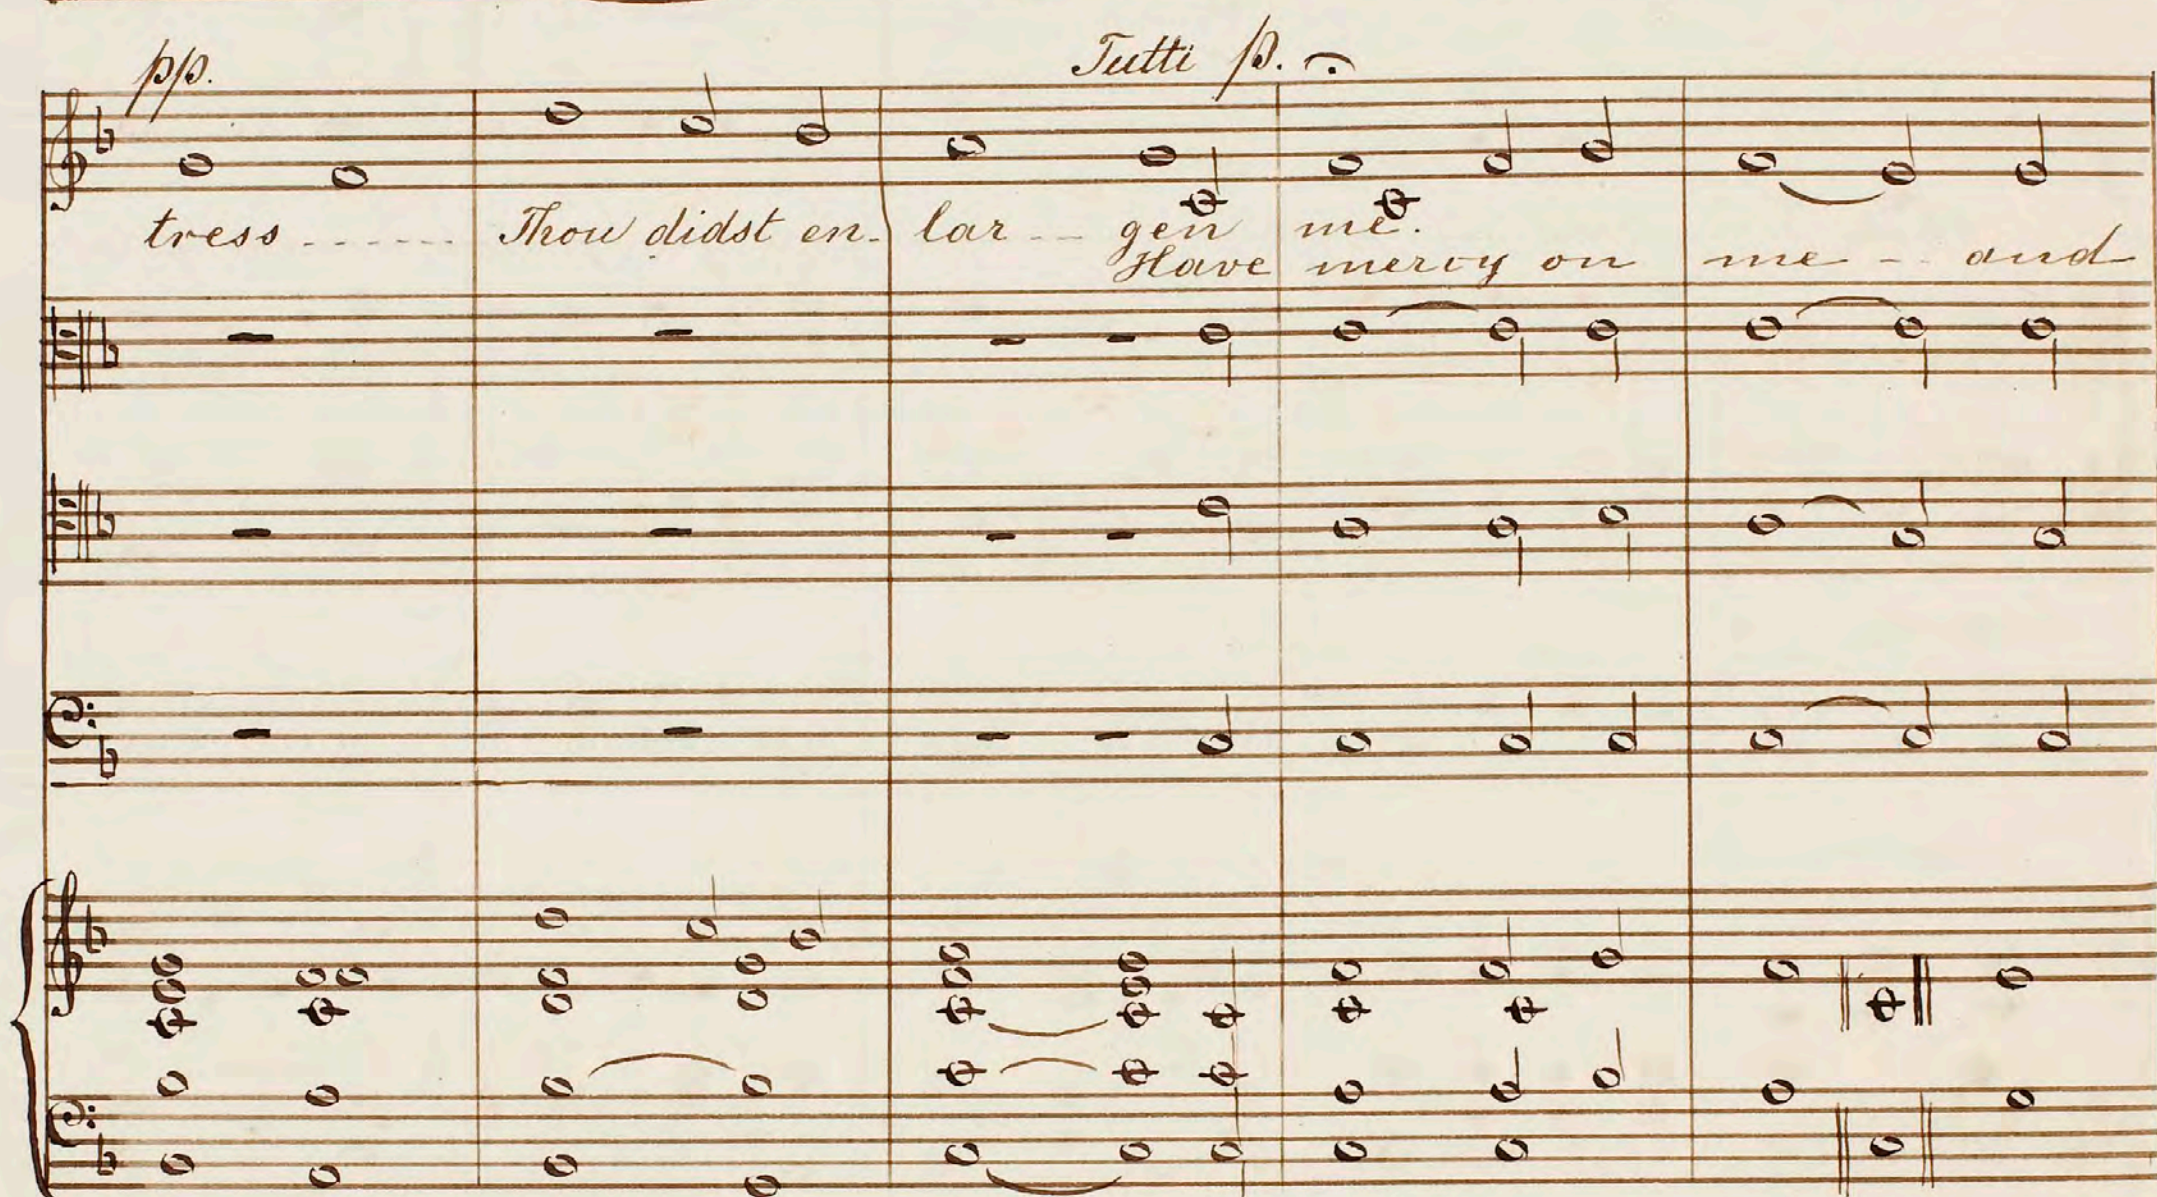 pp. Tutti p.
tress ------ Thou didst en- lar -- gen me.
Have mercy on me -- and